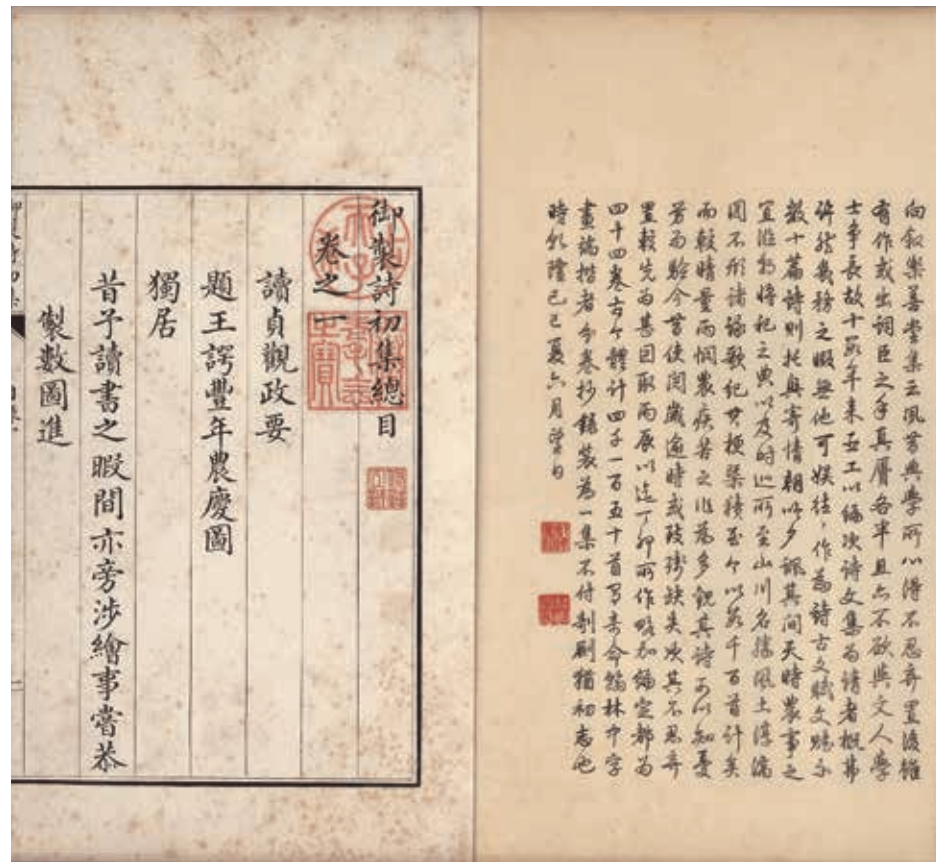 向叙樂善堂集云夙昔典學所心得不忍弃置後雖
有作或出詞臣之手真贋各半且亦不欲與文人學
士爭長故十餘年來臣工以編次詩文集為請者概弗
許然幾務之暇無他可娛往々作為詩古文賦文賦不
數十篇詩則托興寄情朝吟夕諷其間天時農事之
宜涖朝將祀之典以及時巡所至山川名勝風土淳漓
罔不形諸詠歌紀其梗槩積至今以數千百首計矣
而較晴量雨憫農疾苦之作為多觀其詩可以知憂
勞而驗今昔使閱歲逾時或致殘缺失次其不忍弃
置較先為甚因取丙辰以迄丁卯所作略加編定都為
四十四卷古今體計四千一百五十首有奇命翰林中字
畫端楷者分卷抄錄裝為一集不付剞劂猶初志也
時乾隆己巳夏六月望日
御製詩初集總目
卷之一
讀貞觀政要
題王諤豐年農慶圖
獨居
昔予讀書之暇間亦旁涉繪事嘗恭
製數圖進